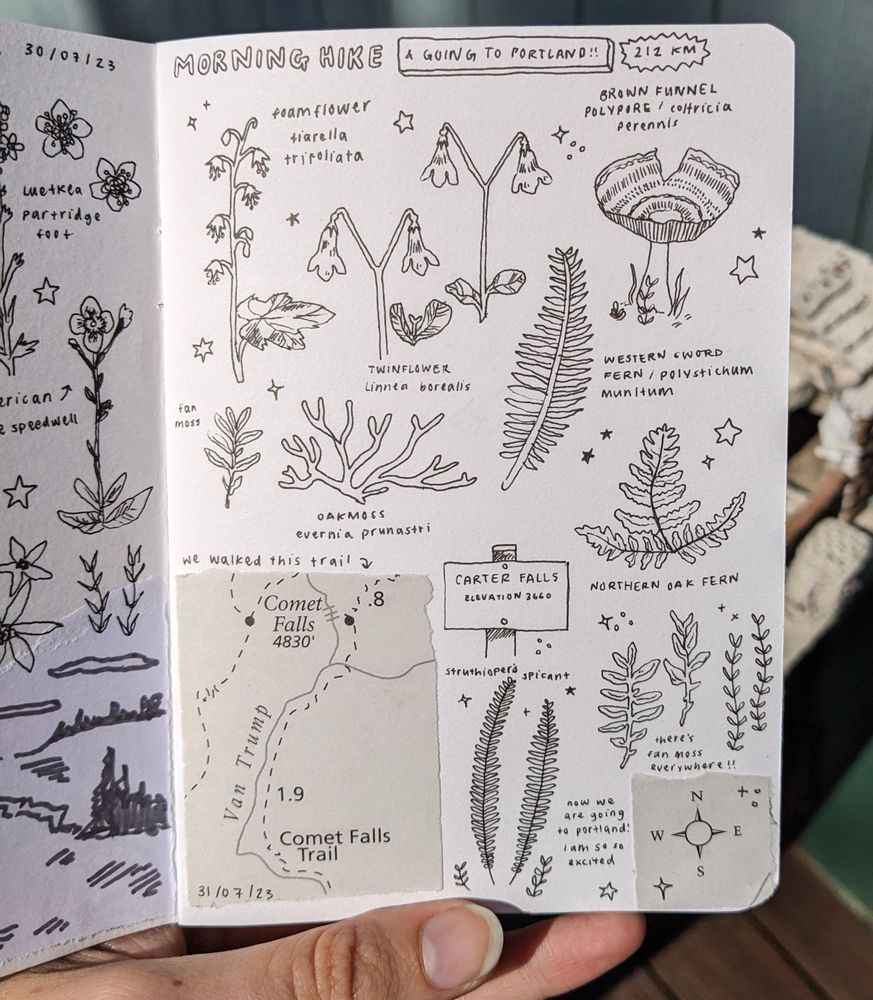 30/07/23
Luetkea
partridge
foot
erican
e speedwell
MORNING HIKE
& GOING TO PORTLAND!!
212 KM
foamflower
tiarella
trifoliata
BROWN FUNNEL
POLYPORE / coltricia
perennis
TWINFLOWER
Linnea borealis
WESTERN SWORD
FERN / polystichum
munitum
fan
moss
OAKMOSS
evernia prunastri
NORTHERN OAK FERN
we walked this trail
Comet
Falls
4830'
.8
Van Trump
1.9
Comet Falls
Trail
31/07/23
CARTER FALLS
ELEVATION 3660
struthiopteris spicant
there's
fan moss
everywhere!!
now we
are going
to portland!
i am so so
excited
N
W E
S